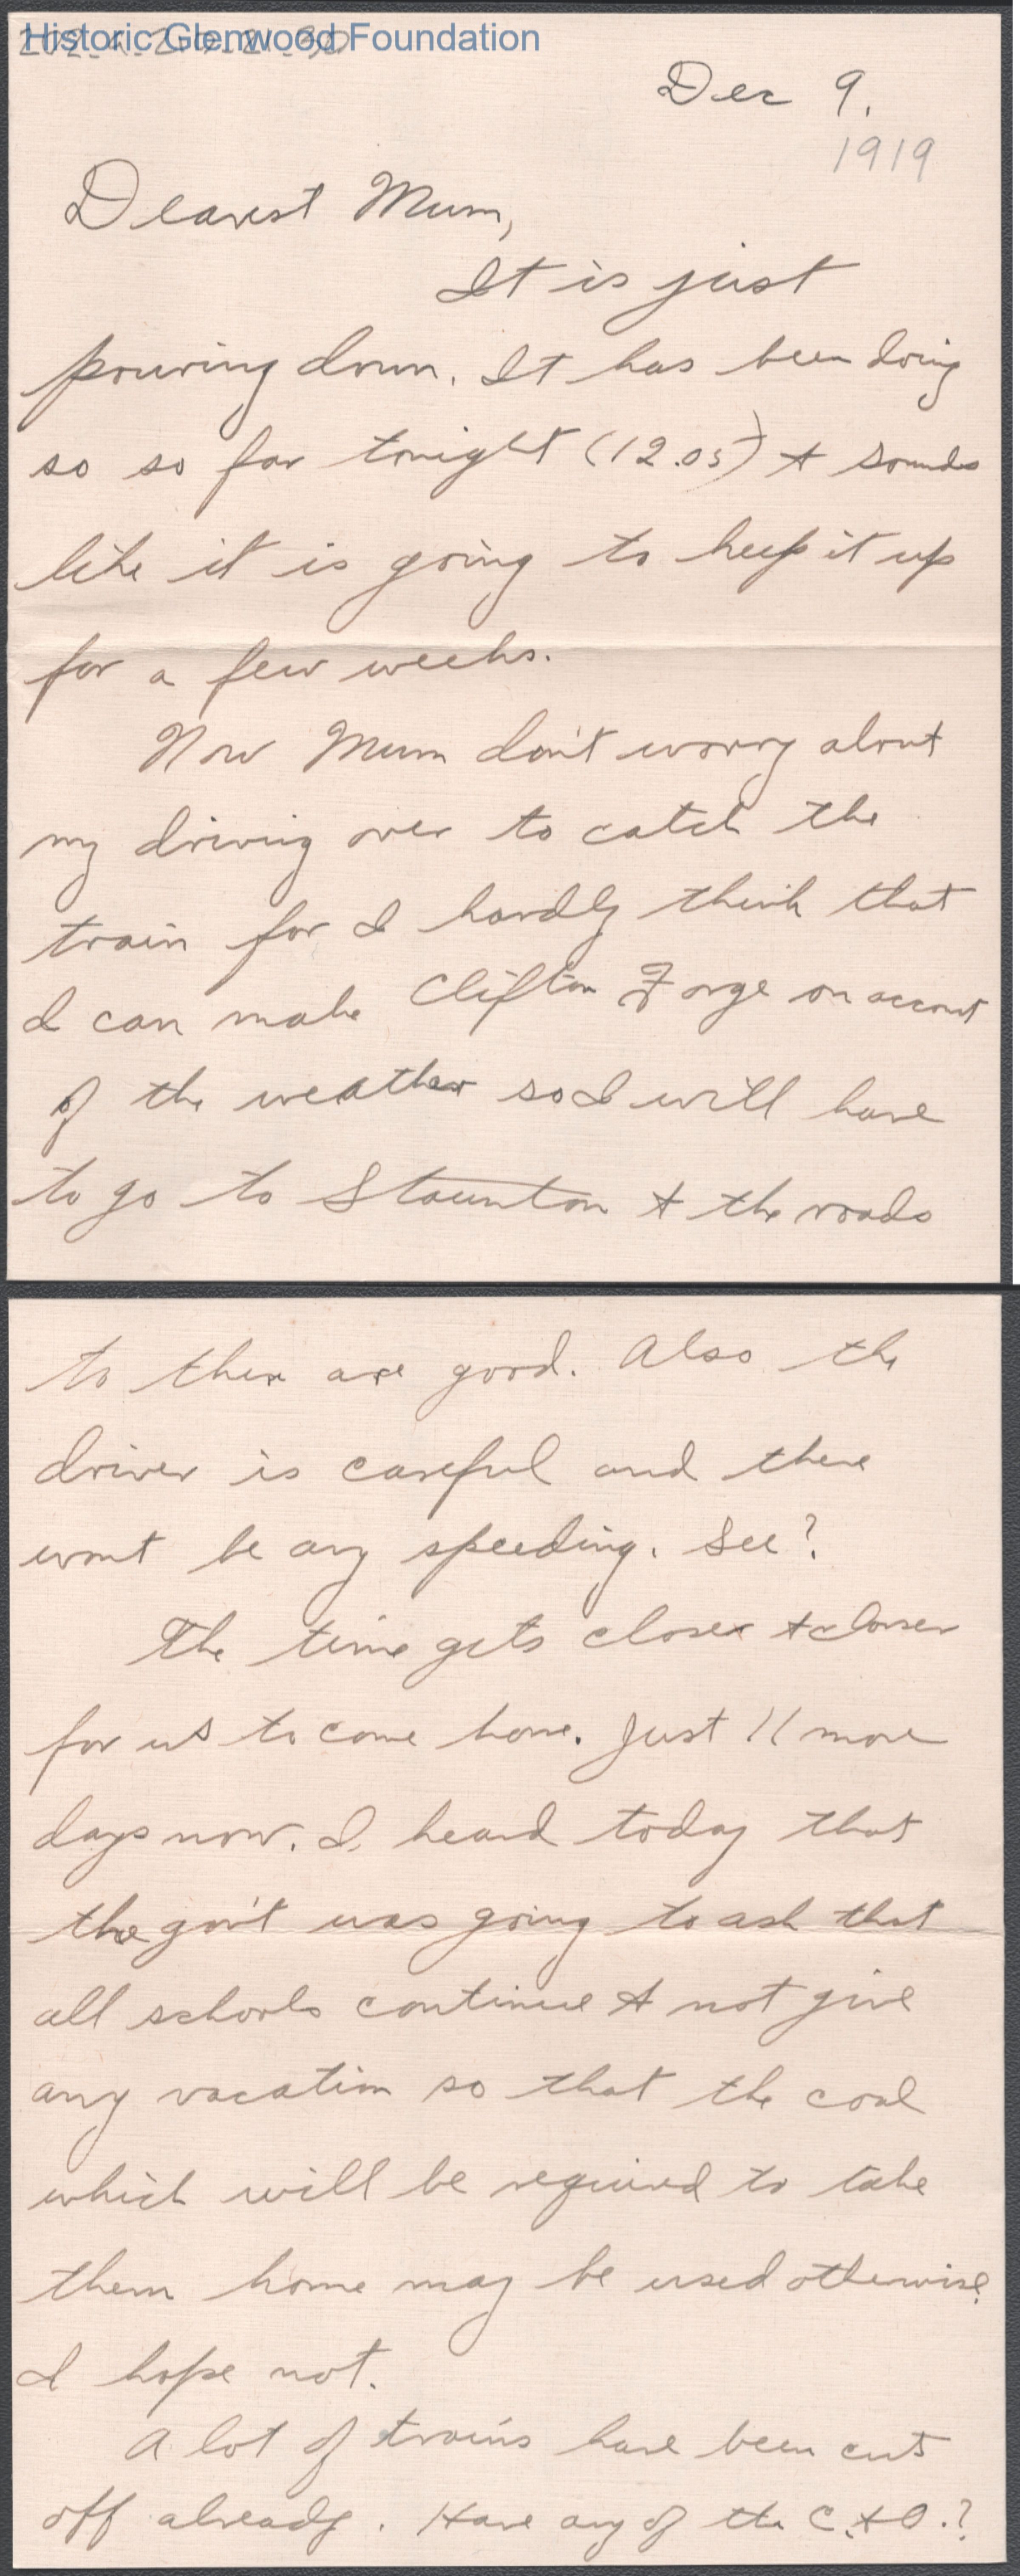 Historic Glenwood Foundation
Dec 9.
1919
Dearest Mum,
It is just
pouring down. It has been doing
so so far tonight (12.05) & sounds
like it is going to keep it up
for a few weeks.
Now Mum don't worry about
my driving over to catch the
train for I hardly think that
I can make Clifton Forge on account
of the weather so I will have
to go to Staunton & the roads
to there are good. Also the
driver is careful and there
wont be any speeding. See?
The time gets closer & closer
for us to come home. Just 11 more
days now. I heard today that
the gov't was going to ask that
all schools continue & not give
any vacation so that the coal
which will be required to take
them home may be used otherwise.
I hope not.
A lot of trains have been cut
off already. Have any of the C. & O.?